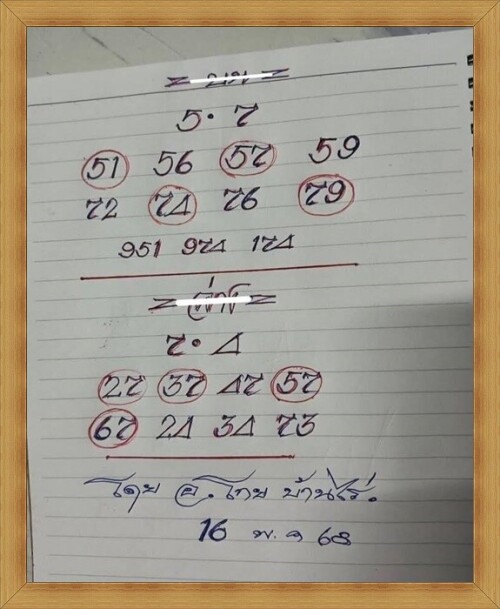 บน
5. 7
51 56 57 59
72 74 76 79
951 974 174
ล่าง
7. 4
27 37 47 57
67 24 34 73
โดย อ. โทย บ้านไร่.
16 พ.ย 68